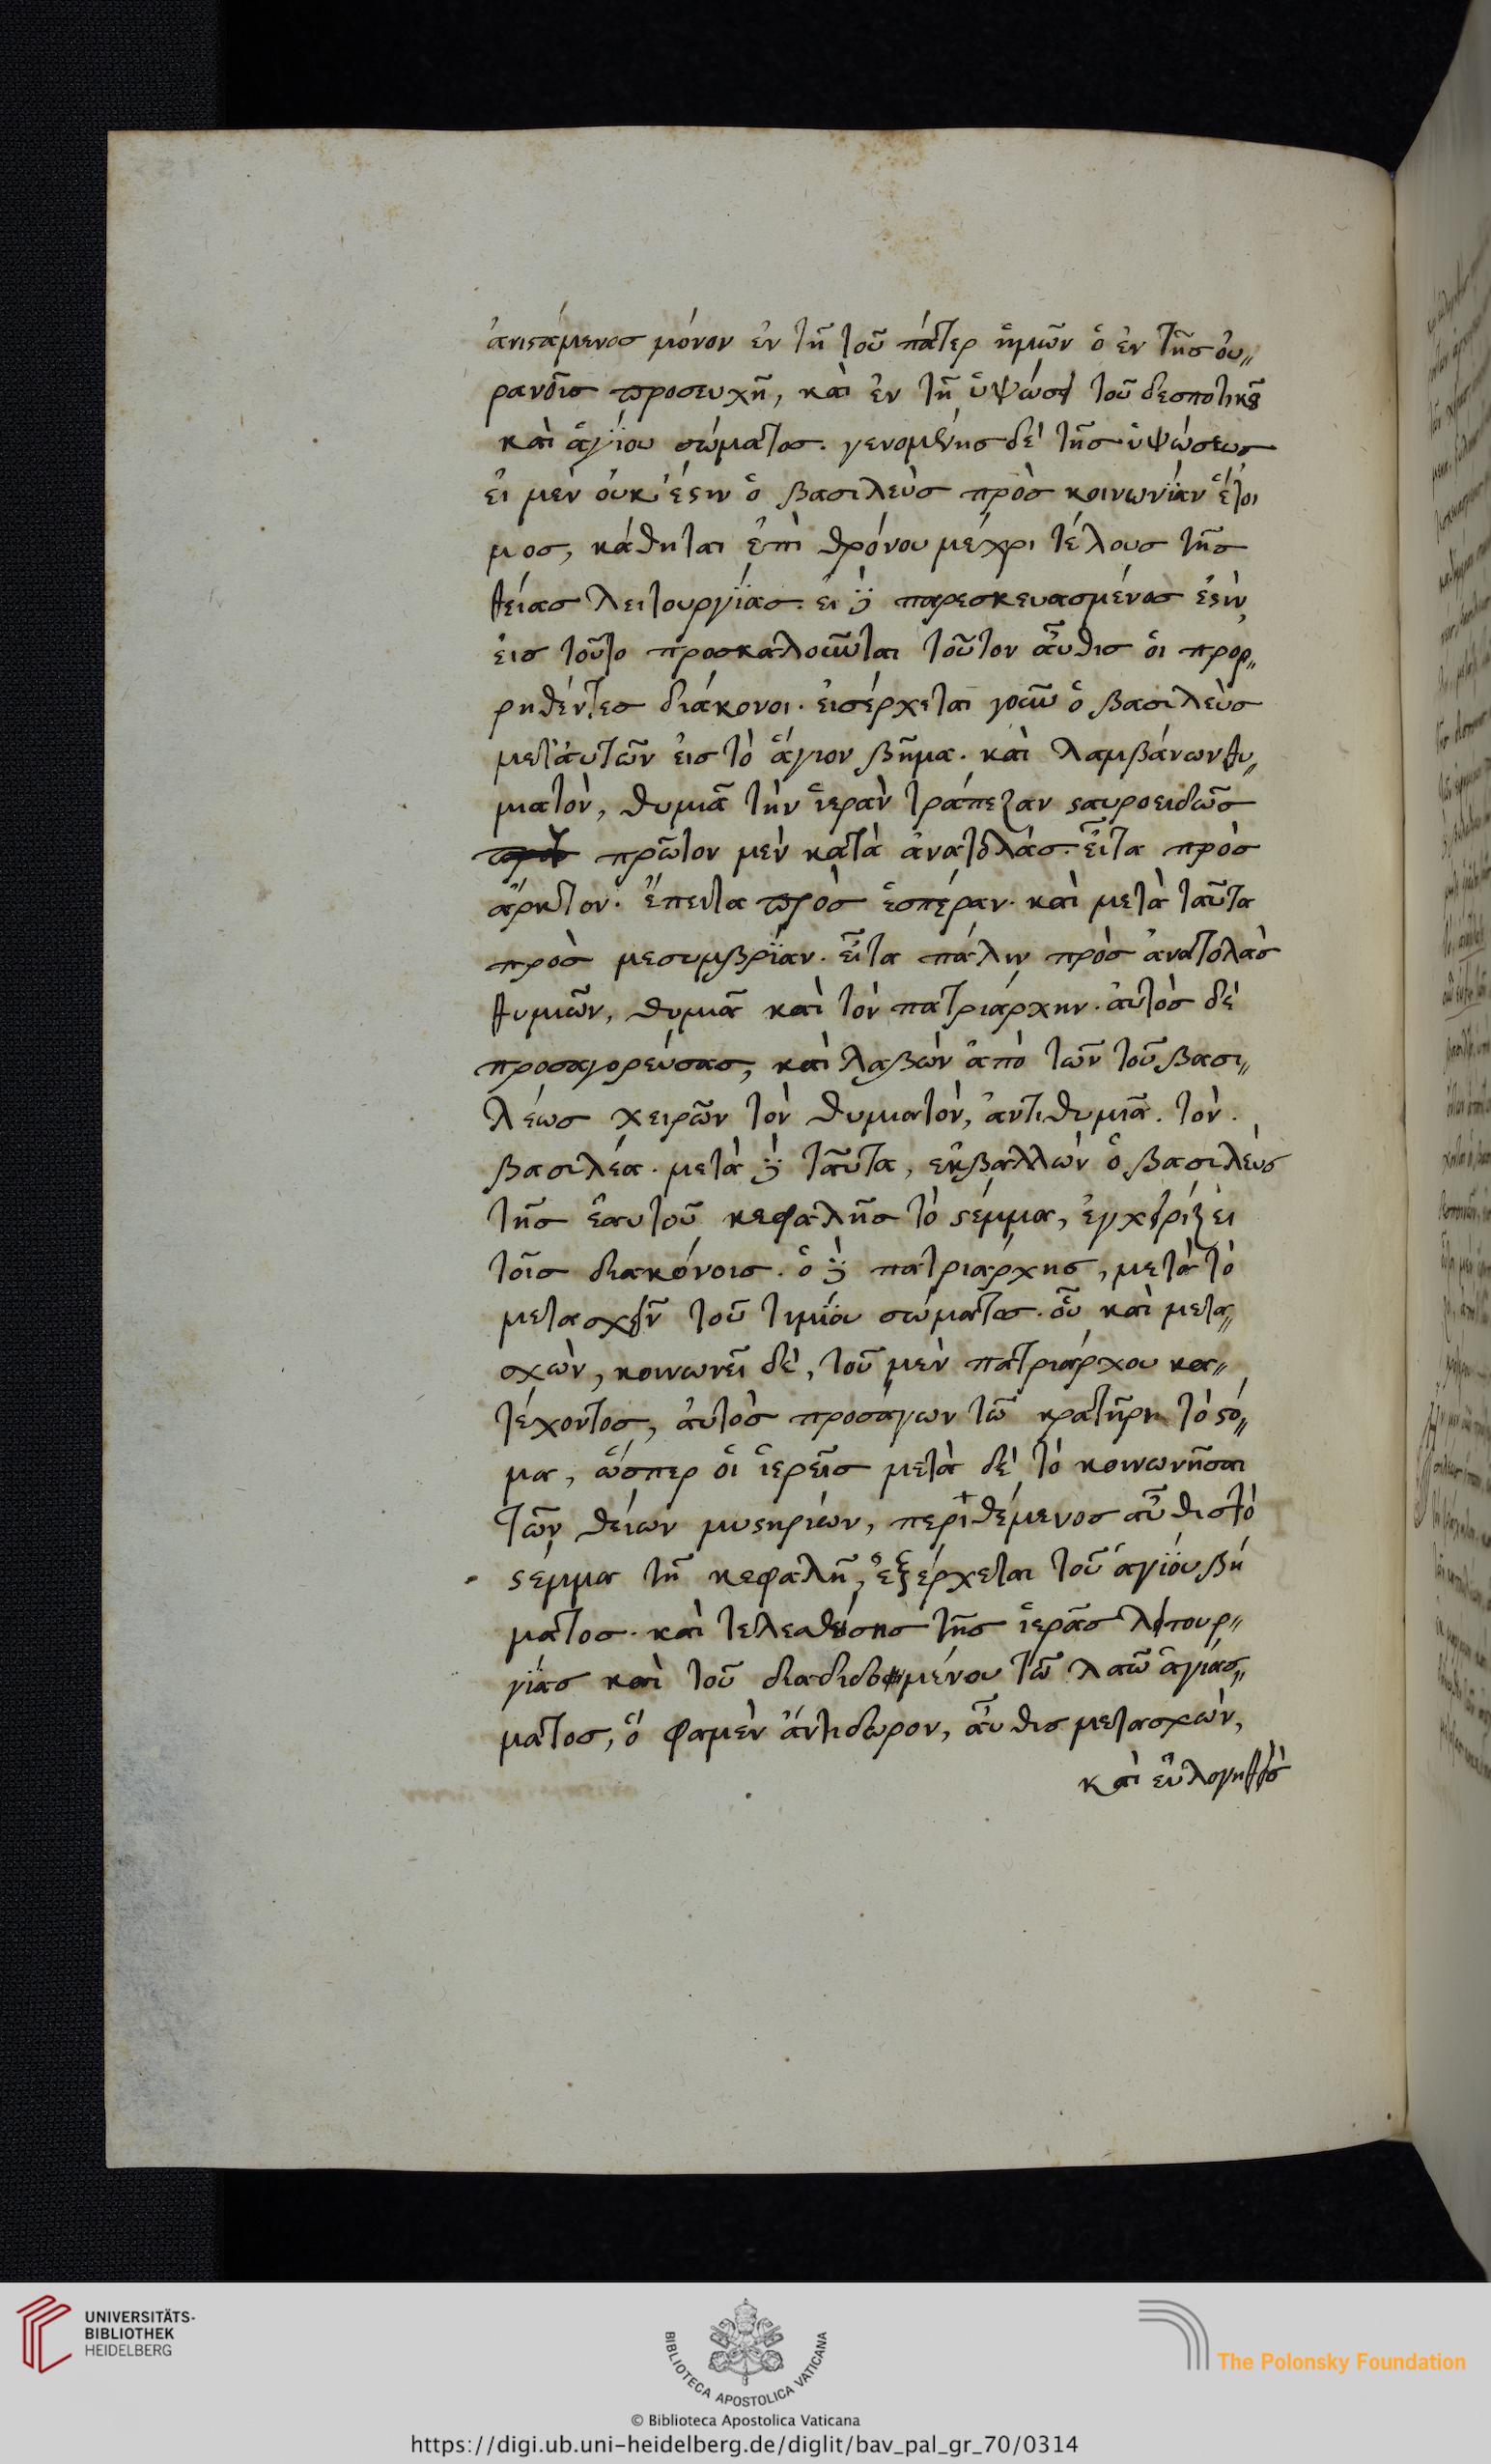 ἀνιϛάμενος μόνον ἐν τῇ τοῦ πάτερ ἡμῶν ὁ ἐν τῆς οὐ〃
ρανοῖς προσευχῆ, καὶ ἐν τῆ ὑψώσει τοῦ δεσποτικοῦ
καὶ ἁγίου σώματος. γενομένης δὲ τῆς ὑψώσεως
εἰ μὲν οὐκ ἔϛιν ὁ βασιλεὺς πρὸς κοινωνίαν ἕτοι
μος, κάθηται ἐπὶ θρόνου μέχρι τέλους τῆς
θείας λειτουργίας. εἰ δὲ παρεσκευασμένος ἐϛὶν,
εἰς τοῦτο προσκαλοῦνται τοῦτον αὖθις οἱ προρ〃
ρηθέντες διάκονοι. εἰσέρχεται γοῦν ὁ βασιλεὺς
μετ' αὐτῶν εἰς τὸ ἅγιον βῆμα. καὶ λαμβάνων θυ〃
μιατὸν, θυμιᾶ τὴν ἱερὰν τράπεζαν ϛαυροειδῶς
πρῶτον μὲν κατὰ ἀνατολάς. εἶτα πρὸς
ἄρκτον. ἔπειτα πρὸς ἑσπέραν. καὶ μετὰ ταῦτα
πρὸς μεσυμβρίαν. εἶτα πάλιν πρὸς ἀνατολὰς
θυμιῶν, θυμιᾶ καὶ τὸν πατριάρχην. αὐτὸς δὲ
προσαγορεύσας, καὶ λαβὼν ἀπὸ τῶν τοῦ βασι〃
λέως χειρῶν τὸν θυμιατὸν, ἀντιθυμιᾶ. τὸν.
βασιλέα. μετὰ δὲ ταῦτα, ἐκβαλλὼν ὁ βασιλεὺς
τῆς ἑαυτοῦ κεφαλῆς τὸ ϛέμμα, ἐγχειρίζει
τοῖς διακόνοις. ὁ δὲ πατριάρχης, μετὰ τὸ
μετασχεῖν τοῦ τιμίου σώματος. οὗ καὶ μετα〃
σχὼν, κοινωνεῖ δὲ, τοῦ μὲν πατριάρχου κα〃
τέχοντος, αὐτὸς προσάγων τῶ κρατῆρι τὸ ϛό〃
μα, ὥσπερ οἱ ἱερεῖς μετὰ δὲ τὸ κοινωνῆσαι
τῶν θείων μυϛηρίων, περιθέμενος αὖθις τὸ
ϛέμμα τῆ κεφαλῆ, ἐξέρχεται τοῦ ἁγίου βή
ματος. καὶ τελεσθείσης τῆς ἱερᾶς λειτουρ〃
γίας καὶ τοῦ διαδιδομένου τῶ λαῶ ἁγιάσ〃
ματος, ὅ φαμὲν ἀντίδωρον, αὖθις μετασχὼν,
καὶ εὐλογηθεὶς
UNIVERSITÄTS-
BIBLIOTHEK
HEIDELBERG
BIBLIOTECA APOSTOLICA VATICANA
The Polonsky Foundation
© Biblioteca Apostolica Vaticana
https://digi.ub.uni-heidelberg.de/diglit/bav_pal_gr_70/0314